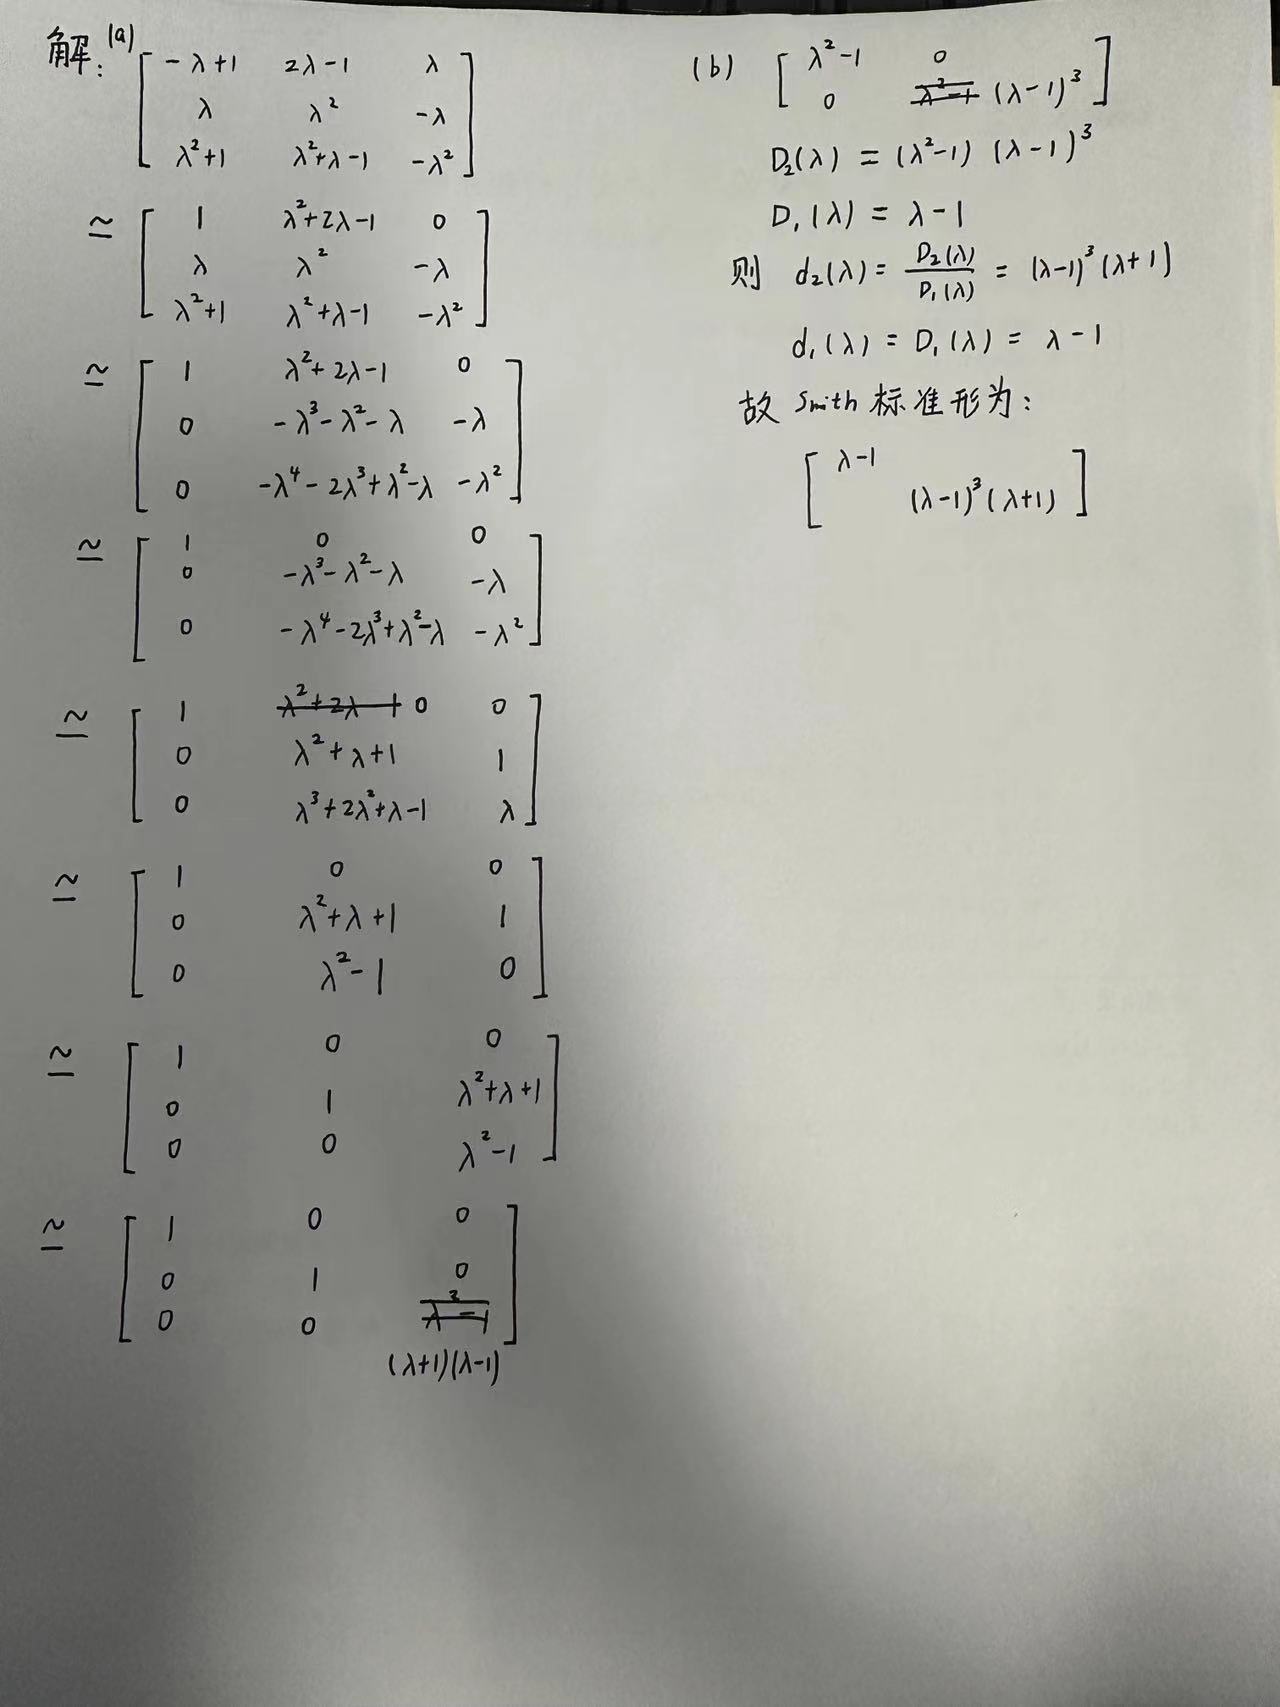 解: (a)
[ -λ+1 2λ-1 λ ]
[ λ λ² -λ ]
[ λ²+1 λ²+λ-1 -λ² ]
≃ [ 1 λ²+2λ-1 0 ]
[ λ λ² -λ ]
[ λ²+1 λ²+λ-1 -λ² ]
≃ [ 1 λ²+2λ-1 0 ]
[ 0 -λ³-λ²-λ -λ ]
[ 0 -λ⁴-2λ³+λ²-λ -λ² ]
≃ [ 1 0 0 ]
[ 0 -λ³-λ²-λ -λ ]
[ 0 -λ⁴-2λ³+λ²-λ -λ² ]
≃ [ 1 0 0 ]
[ 0 λ²+λ+1 1 ]
[ 0 λ³+2λ²+λ-1 λ ]
≃ [ 1 0 0 ]
[ 0 λ²+λ+1 1 ]
[ 0 λ²-1 0 ]
≃ [ 1 0 0 ]
[ 0 1 λ²+λ+1 ]
[ 0 0 λ²-1 ]
≃ [ 1 0 0 ]
[ 0 1 0 ]
[ 0 0 λ²-1 ]
(λ+1)(λ-1)
(b) [ λ²-1 0 ]
[ 0 λ²-1 (λ-1)³ ]
D₂(λ) = (λ²-1) (λ-1)³
D₁(λ) = λ-1
则 d₂(λ) = D₂(λ)/D₁(λ) = (λ-1)³(λ+1)
d₁(λ) = D₁(λ) = λ-1
故 Smith 标准形为:
[ λ-1
(λ-1)³(λ+1) ]